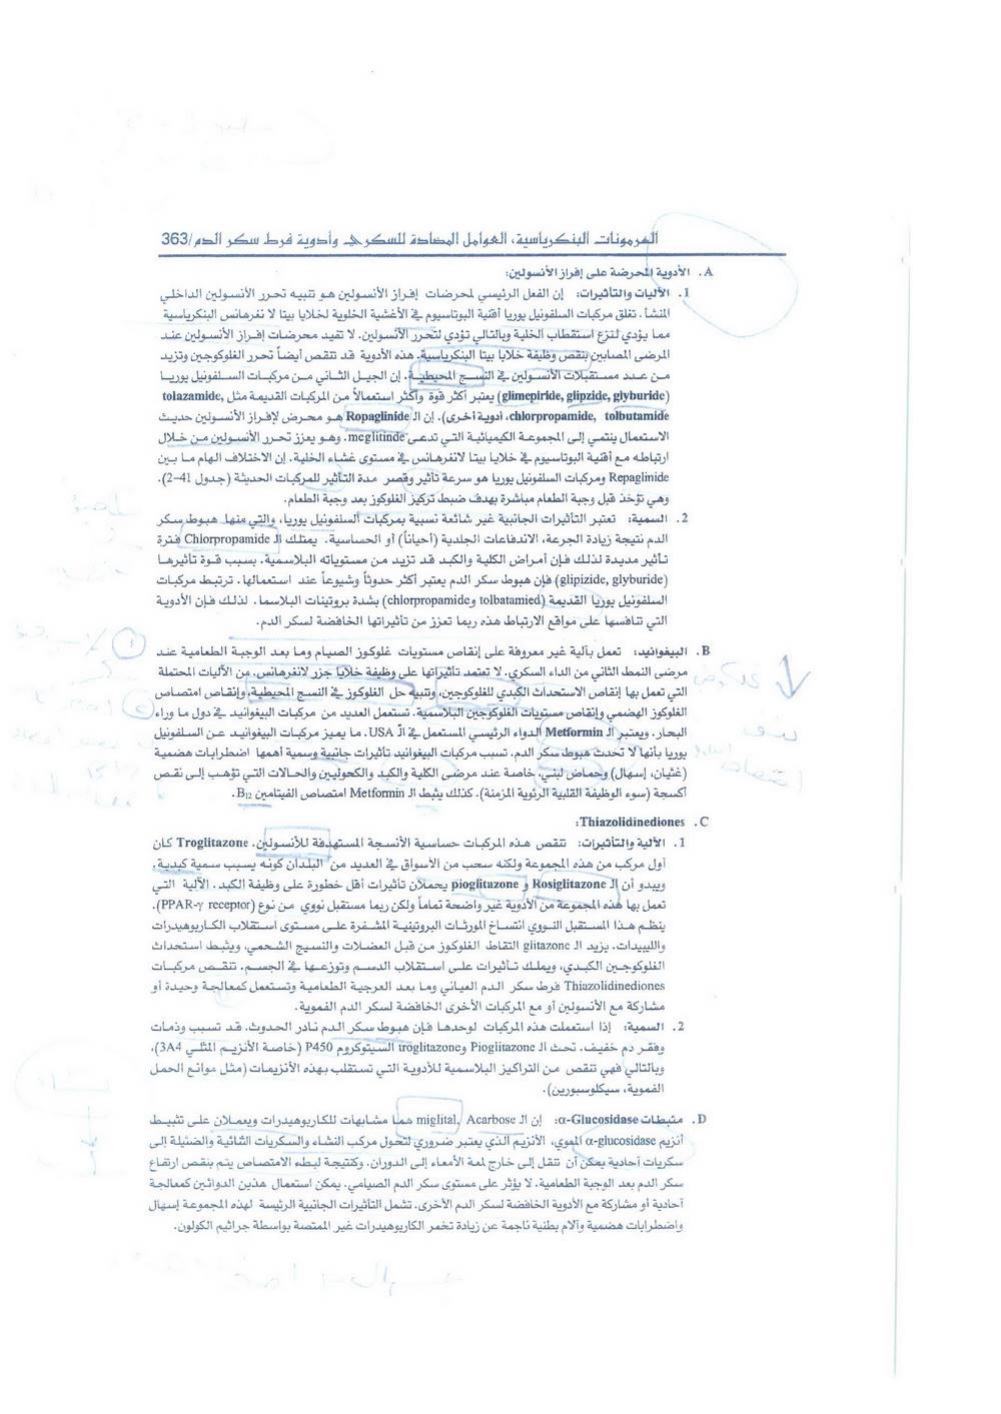 الهرمونات البنكرياسية، العوامل المضادة للسكري وأدوية فرط سكر الدم/363
A. الأدوية المحرضة على إفراز الأنسولين:
1. الآليات والتأثيرات: إن الفعل الرئيسي لمحرضات إفراز الأنسولين هو تنبيه تحرر الأنسولين الداخلي
المنشأ. تغلق مركبات السلفونيل يوريا أقنية البوتاسيوم في الأغشية الخلوية لخلايا بيتا لا نغرهانس البنكرياسية
مما يؤدي لنزع استقطاب الخلية وبالتالي تؤدي لتحرر الأنسولين. لا تفيد محرضات إفراز الأنسولين عند
المرضى المصابين بنقص وظيفة خلايا بيتا البنكرياسية. هذه الأدوية قد تنقص أيضاً تحرر الغلوكوجين وتزيد
من عدد مستقبلات الأنسولين في النسج المحيطية. إن الجيل الثاني من مركبات السلفونيل يوريا
(glimepiride, glipzide, glyburide) يعتبر أكثر قوة وأكثر استعمالاً من المركبات القديمة مثل tolazamide,
chlorpropamide, tolbutamide، أدوية أخرى). إن الـ Ropaglinide هو محرض لإفراز الأنسولين حديث
الاستعمال ينتمي إلى المجموعة الكيميائية التي تدعى meglitinde، وهو يعزز تحرر الأنسولين من خلال
ارتباطه مع أقنية البوتاسيوم في خلايا بيتا لانغرهانس في مستوى غشاء الخلية. إن الاختلاف الهام ما بين
Repaglinide ومركبات السلفونيل يوريا هو سرعة تأثير وقصر مدة التأثير للمركبات الحديثة (جدول 41–2).
وهي تؤخذ قبل وجبة الطعام مباشرة بهدف ضبط تركيز الغلوكوز بعد وجبة الطعام.
2. السمية: تعتبر التأثيرات الجانبية غير شائعة نسبية بمركبات السلفونيل يوريا، والتي منها هبوط سكر
الدم نتيجة زيادة الجرعة، الاندفاعات الجلدية (أحياناً) أو الحساسية. يمتلك الـ Chlorpropamide فترة
تأثير مديدة لذلك فإن أمراض الكلية والكبد قد تزيد من مستوياته البلاسمية. بسبب قوة تأثيرها
(glipizide, glyburide) فإن هبوط سكر الدم يعتبر أكثر حدوثاً وشيوعاً عند استعمالها. ترتبط مركبات
السلفونيل يوريا القديمة (tolbatamied وchlorpropamide) بشدة بروتينات البلاسما. لذلك فإن الأدوية
التي تنافسها على مواقع الارتباط هذه ربما تعزز من تأثيراتها الخافضة لسكر الدم.
B. البيغوانيد: تعمل بآلية غير معروفة على إنقاص مستويات غلوكوز الصيام وما بعد الوجبة الطعامية عند
مرضى النمط الثاني من الداء السكري. لا تعتمد تأثيراتها على وظيفة خلايا جزر لانغرهانس. من الآليات المحتملة
التي تعمل بها إنقاص الاستحداث الكبدي للغلوكوجين، وتنبيه حل الغلوكوز في النسج المحيطية، وإنقاص امتصاص
الغلوكوز الهضمي وإنقاص مستويات الغلوكوجين البلاسمية. تستعمل العديد من مركبات البيغوانيد في دول ما وراء
البحار. ويعتبر الـ Metformin الدواء الرئيسي المستعمل في الـ USA. ما يميز مركبات البيغوانيد عن السلفونيل
يوريا بأنها لا تحدث هبوط سكر الدم. تسبب مركبات البيغوانيد تأثيرات جانبية وسمية أهمها اضطرابات هضمية
(غثيان، إسهال) وحماض لبني، خاصة عند مرضى الكلية والكبد والكحوليين والحالات التي تؤهب إلى نقص
أكسجة (سوء الوظيفة القلبية الرئوية المزمنة). كذلك يثبط الـ Metformin امتصاص الفيتامين B12.
C. Thiazolidinediones:
1. الآلية والتأثيرات: تنقص هذه المركبات حساسية الأنسجة المستهدفة للأنسولين. Troglitazone كان
أول مركب من هذه المجموعة ولكنه سحب من الأسواق في العديد من البلدان كونه يسبب سمية كبدية.
ويبدو أن الـ Rosiglitazone و pioglitazone يحملان تأثيرات أقل خطورة على وظيفة الكبد. الآلية التي
تعمل بها هذه المجموعة من الأدوية غير واضحة تماماً ولكن ربما مستقبل نووي من نوع (PPAR-γ receptor).
ينظم هذا المستقبل النووي انتساخ المورثات البروتينية المشفرة على مستوى استقلاب الكاربوهيدرات
والليبيدات. يزيد الـ glitazone التقاط الغلوكوز من قبل العضلات والنسيج الشحمي، ويثبط استحداث
الغلوكوجين الكبدي، ويملك تأثيرات على استقلاب الدسم وتوزعها في الجسم. تنقص مركبات
Thiazolidinediones فرط سكر الدم العياني وما بعد العرجية الطعامية وتستعمل كمعالجة وحيدة أو
مشاركة مع الأنسولين أو مع المركبات الأخرى الخافضة لسكر الدم الفموية.
2. السمية: إذا استعملت هذه المركبات لوحدها فإن هبوط سكر الدم نادر الحدوث. قد تسبب وذمات
وفقر دم خفيف. تحث الـ Pioglitazone وtroglitazone السيتوكروم P450 (خاصة الأنزيم المثلي 3A4)،
وبالتالي فهي تنقص من التراكيز البلاسمية للأدوية التي تستقلب بهذه الأنزيمات (مثل موانع الحمل
الفموية، سيكلوسبورين).
D. مثبطات α-Glucosidase: إن الـ miglital, Acarbose هما مشابهات للكاربوهيدرات ويعملان على تثبيط
أنزيم α-glucosidase المعوي، الأنزيم الذي يعتبر ضروري لتحول مركب النشاء والسكريات الثنائية والضئيلة إلى
سكريات أحادية يمكن أن تنقل إلى خارج لمعة الأمعاء إلى الدوران. وكنتيجة لبطء الامتصاص يتم بنقص ارتفاع
سكر الدم بعد الوجبة الطعامية. لا يؤثر على مستوى سكر الدم الصيامي. يمكن استعمال هذين الدوائين كمعالجة
أحادية أو مشاركة مع الأدوية الخافضة لسكر الدم الأخرى. تشمل التأثيرات الجانبية الرئيسة لهذه المجموعة إسهال
واضطرابات هضمية وآلام بطنية ناجمة عن زيادة تخمر الكاربوهيدرات غير الممتصة بواسطة جراثيم الكولون.